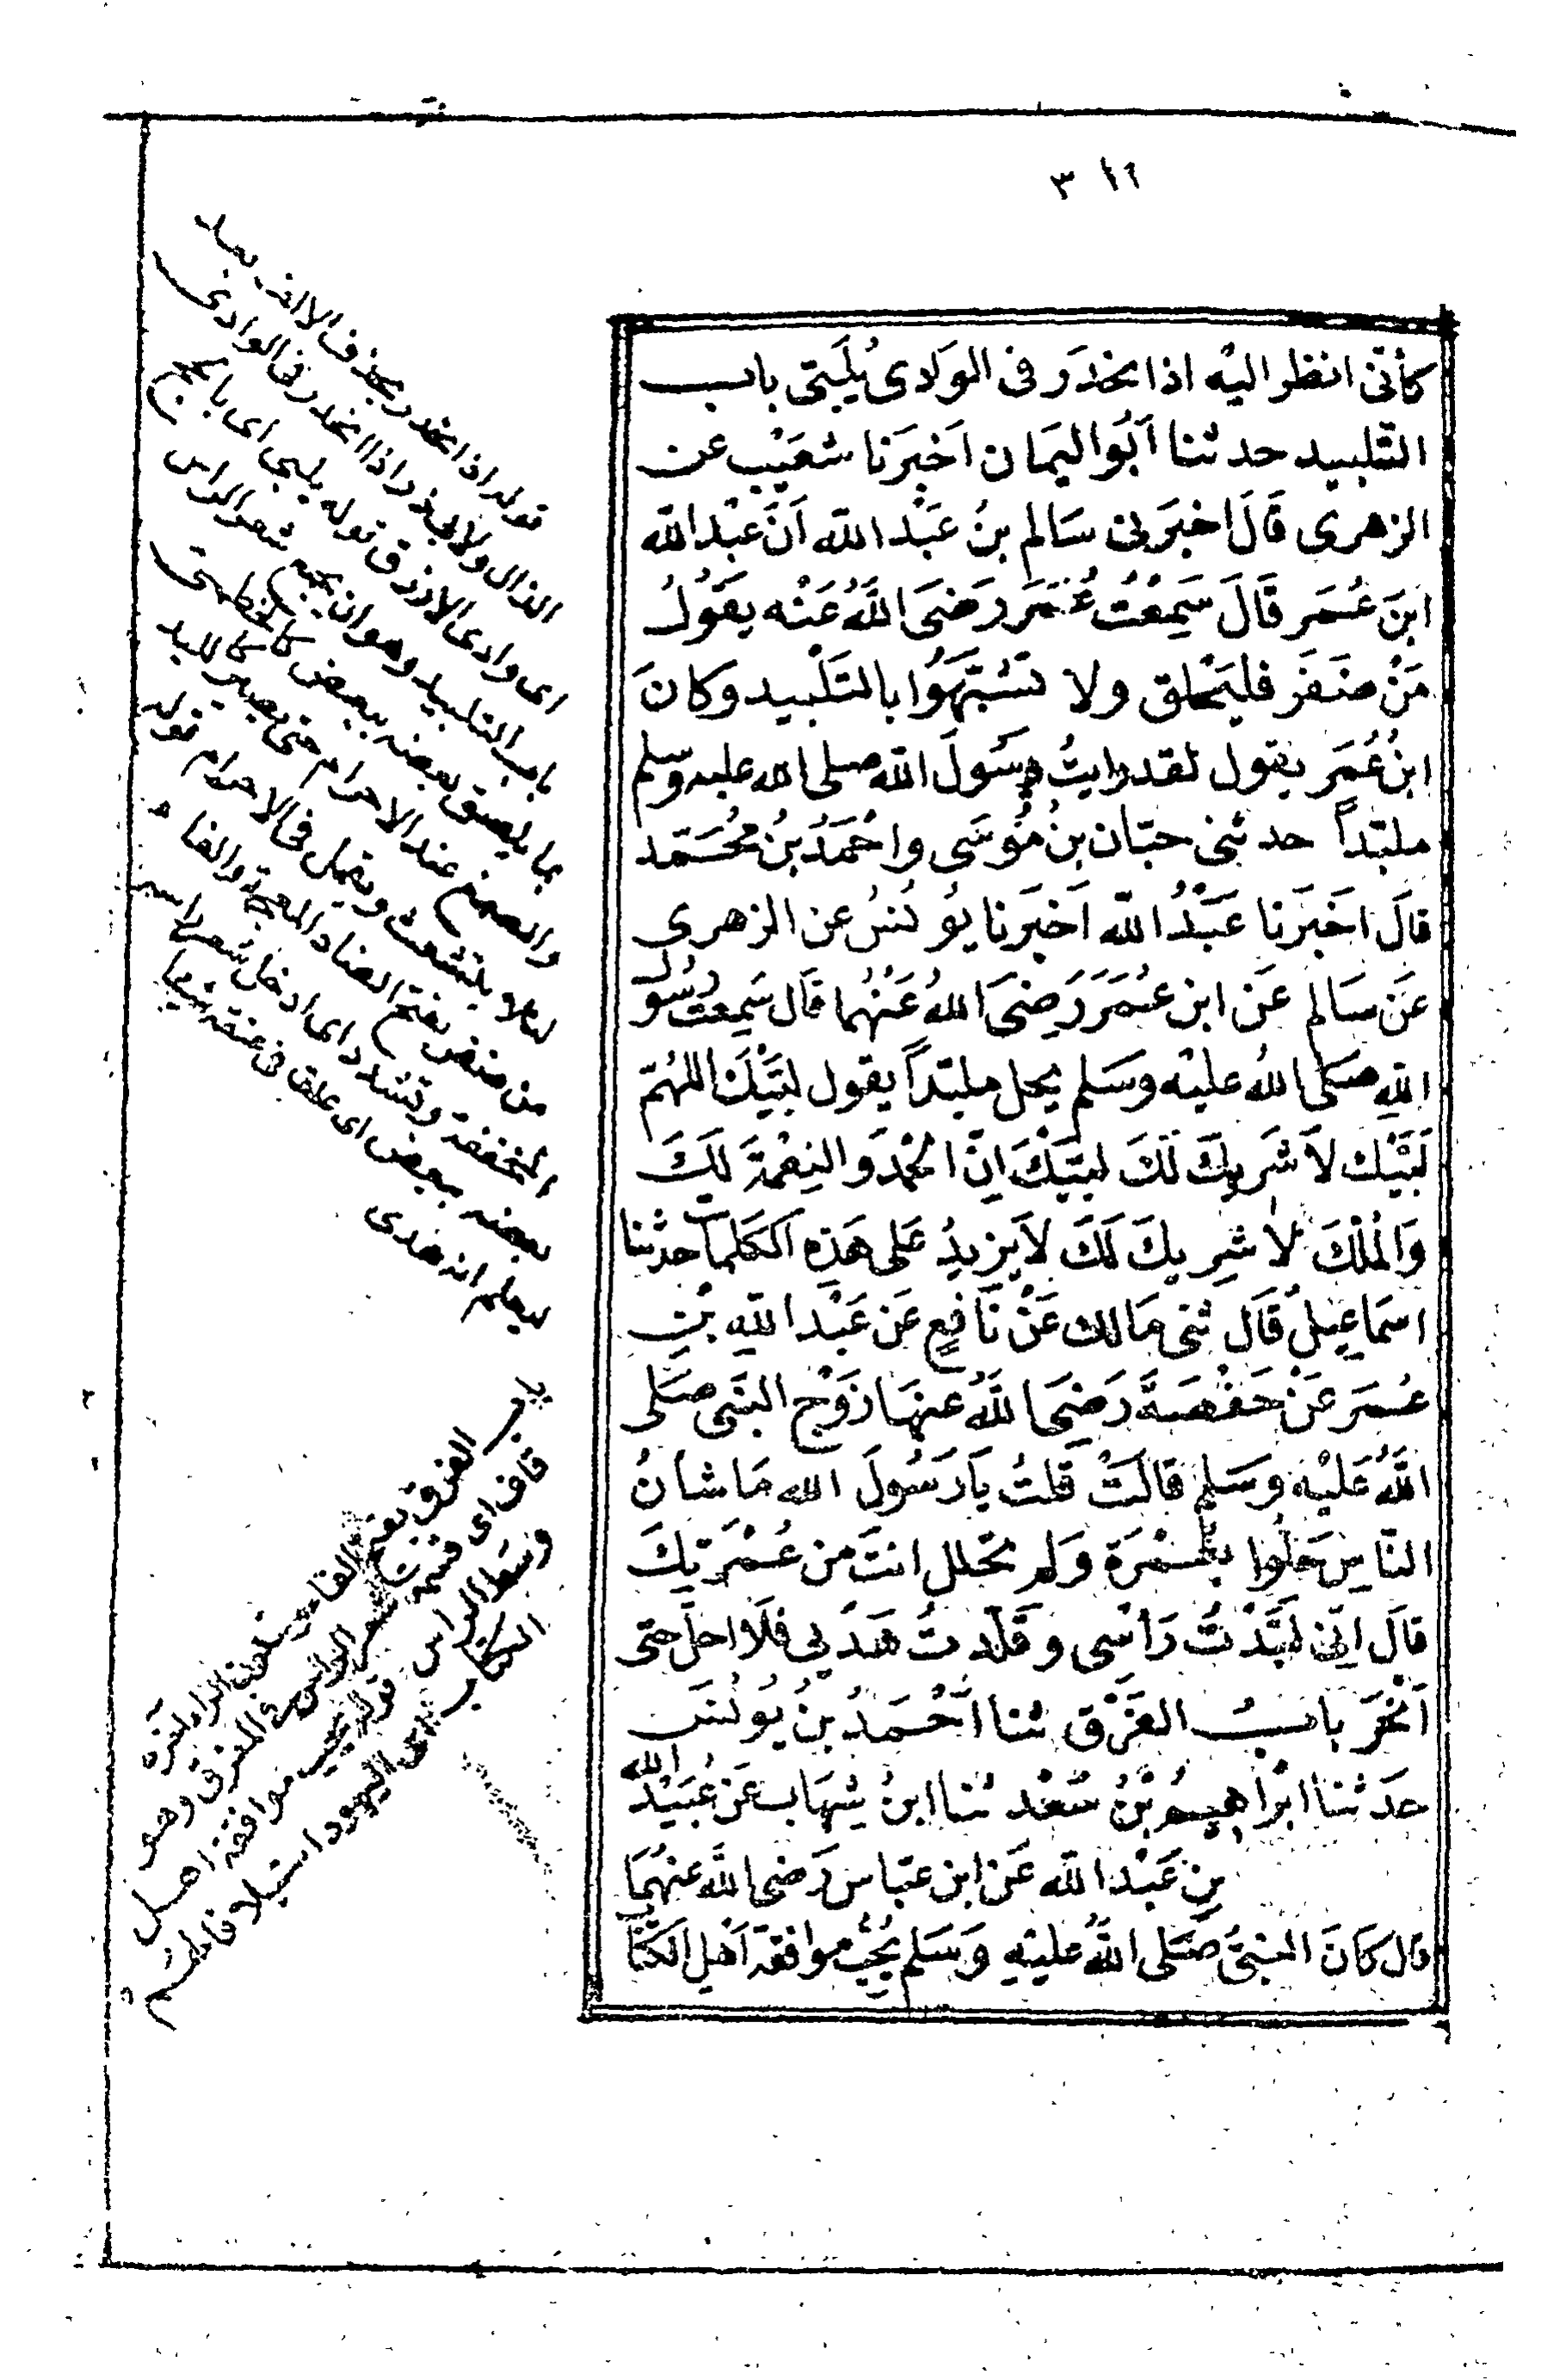 كأنّى انظر اليْه اذا انحَدَر فى الوَادى يُلَبّى باب
التّلبيد حدثنا اَبُو اليَمَان اَخبَرَنا شعَيْب عن
الزهرى قَالَ اخبرَنى سَالم بنُ عَبْد الله اَنَّ عبْد الله
ابنَ عُمَر قَالَ سَمِعْتُ عُمَر رَضىَ اللَّهُ عَنْه يقَوُلُ
مَنْ ضَفَر فليَحْلق ولا تشبَّهَوُا بالتَلْبيد وكانَ
ابنُ عُمَر يقول لقد رايتُ رسُولَ الله صلى الله عليه وسلم
ملبّداً حدثنى حبّان بنُ مُوسَى واحْمَدُ بنُ محُمَّد
قالَ اخبَرَنا عَبْدُ الله اَخبَرنا يوُنسُ عن الزهرى
عَن سَالم عَن ابن عُمَرَ رَضىَ اللهُ عَنْهُما قَال سَمِعتُ رسُول
اللهِ صَلى اللهُ عليْه وَسَلم يهل ملبّداً يقول لبّيْكَ اللهُمّ
لَبّيْك لاَ شَريكَ لكَ لبّيْكَ اِنّ الحْمْدَ والنِعْمَةَ لَكَ
وَالمُلْكَ لاَ شَرِيكَ لَكَ لاَيَزيدُ عَلى هَذِهِ الكَلماَت حدثنا
اسمَاعِيلُ قَال ثنى مَالك عَنْ نَافِعٍ عَن عَبْد اللهِ بْنِ
عُمَر عَنْ حَفْصَةَ رَضِىَ اللَّهُ عنهَا زَوْج النَبى صَلى
اللَّهُ عَليْه وَسَلم قالَتْ قلتُ يَا رَسُولَ الله مَا شأنُ
النّاسِ حَلوُا بعُمْرَة وَلم تحْلل انتَ من عُمْرَتِكَ
قالَ اِنّى لبَّدْتُ رَأسْى وقَلّدتُ هَدْيى فلاَ احلّ حتى
اَنْحَرَ بابُ الفَرْق ثنا اَحْمَدُ بنُ يُونسَ
حَدثنا ابْراهيمُ بْنُ سَعْد ثنا ابنُ شِهَاب عَن عُبَيْد الله
بن عَبْد الله عَن ابن عبّاس رَضى اللَّه عنهُمَا
قال كانَ النبىُّ صَلى اللَّهُ عليْهِ وَسَلم يُحِبُّ موافقة اَهْل الكتَاب
قوله اذا انحدر بحذف الالف بعد
الذال ولابى ذر اذا انحدر فى الوادى
اى وادى الازرق قوله يلبى اى بالحج
باب التلبيد وهو ان يجمع شعر الراس
بما يلصق بعضه ببعض كالخطمى
والصمغ عند الاحرام حتى يصير كاللبد
لئلا يتشعث ويقمل فى الاحرام قوله
من ضفر بفتح الضاد المعجمة والفاء
المخففة وتشدد اى ادخل شعر راسه
بعضه ببعض اى علق فى عنقه شيأ
ليعلم انه هدى
باب الفرق بفتح الفاء وسكون الراء بعده
قاف اى قسمة شعر الراس فى المفرق وهو
وسط الراس قوله يحب موافقة اهل
الكتاب اى اليهود استيلافا لهم